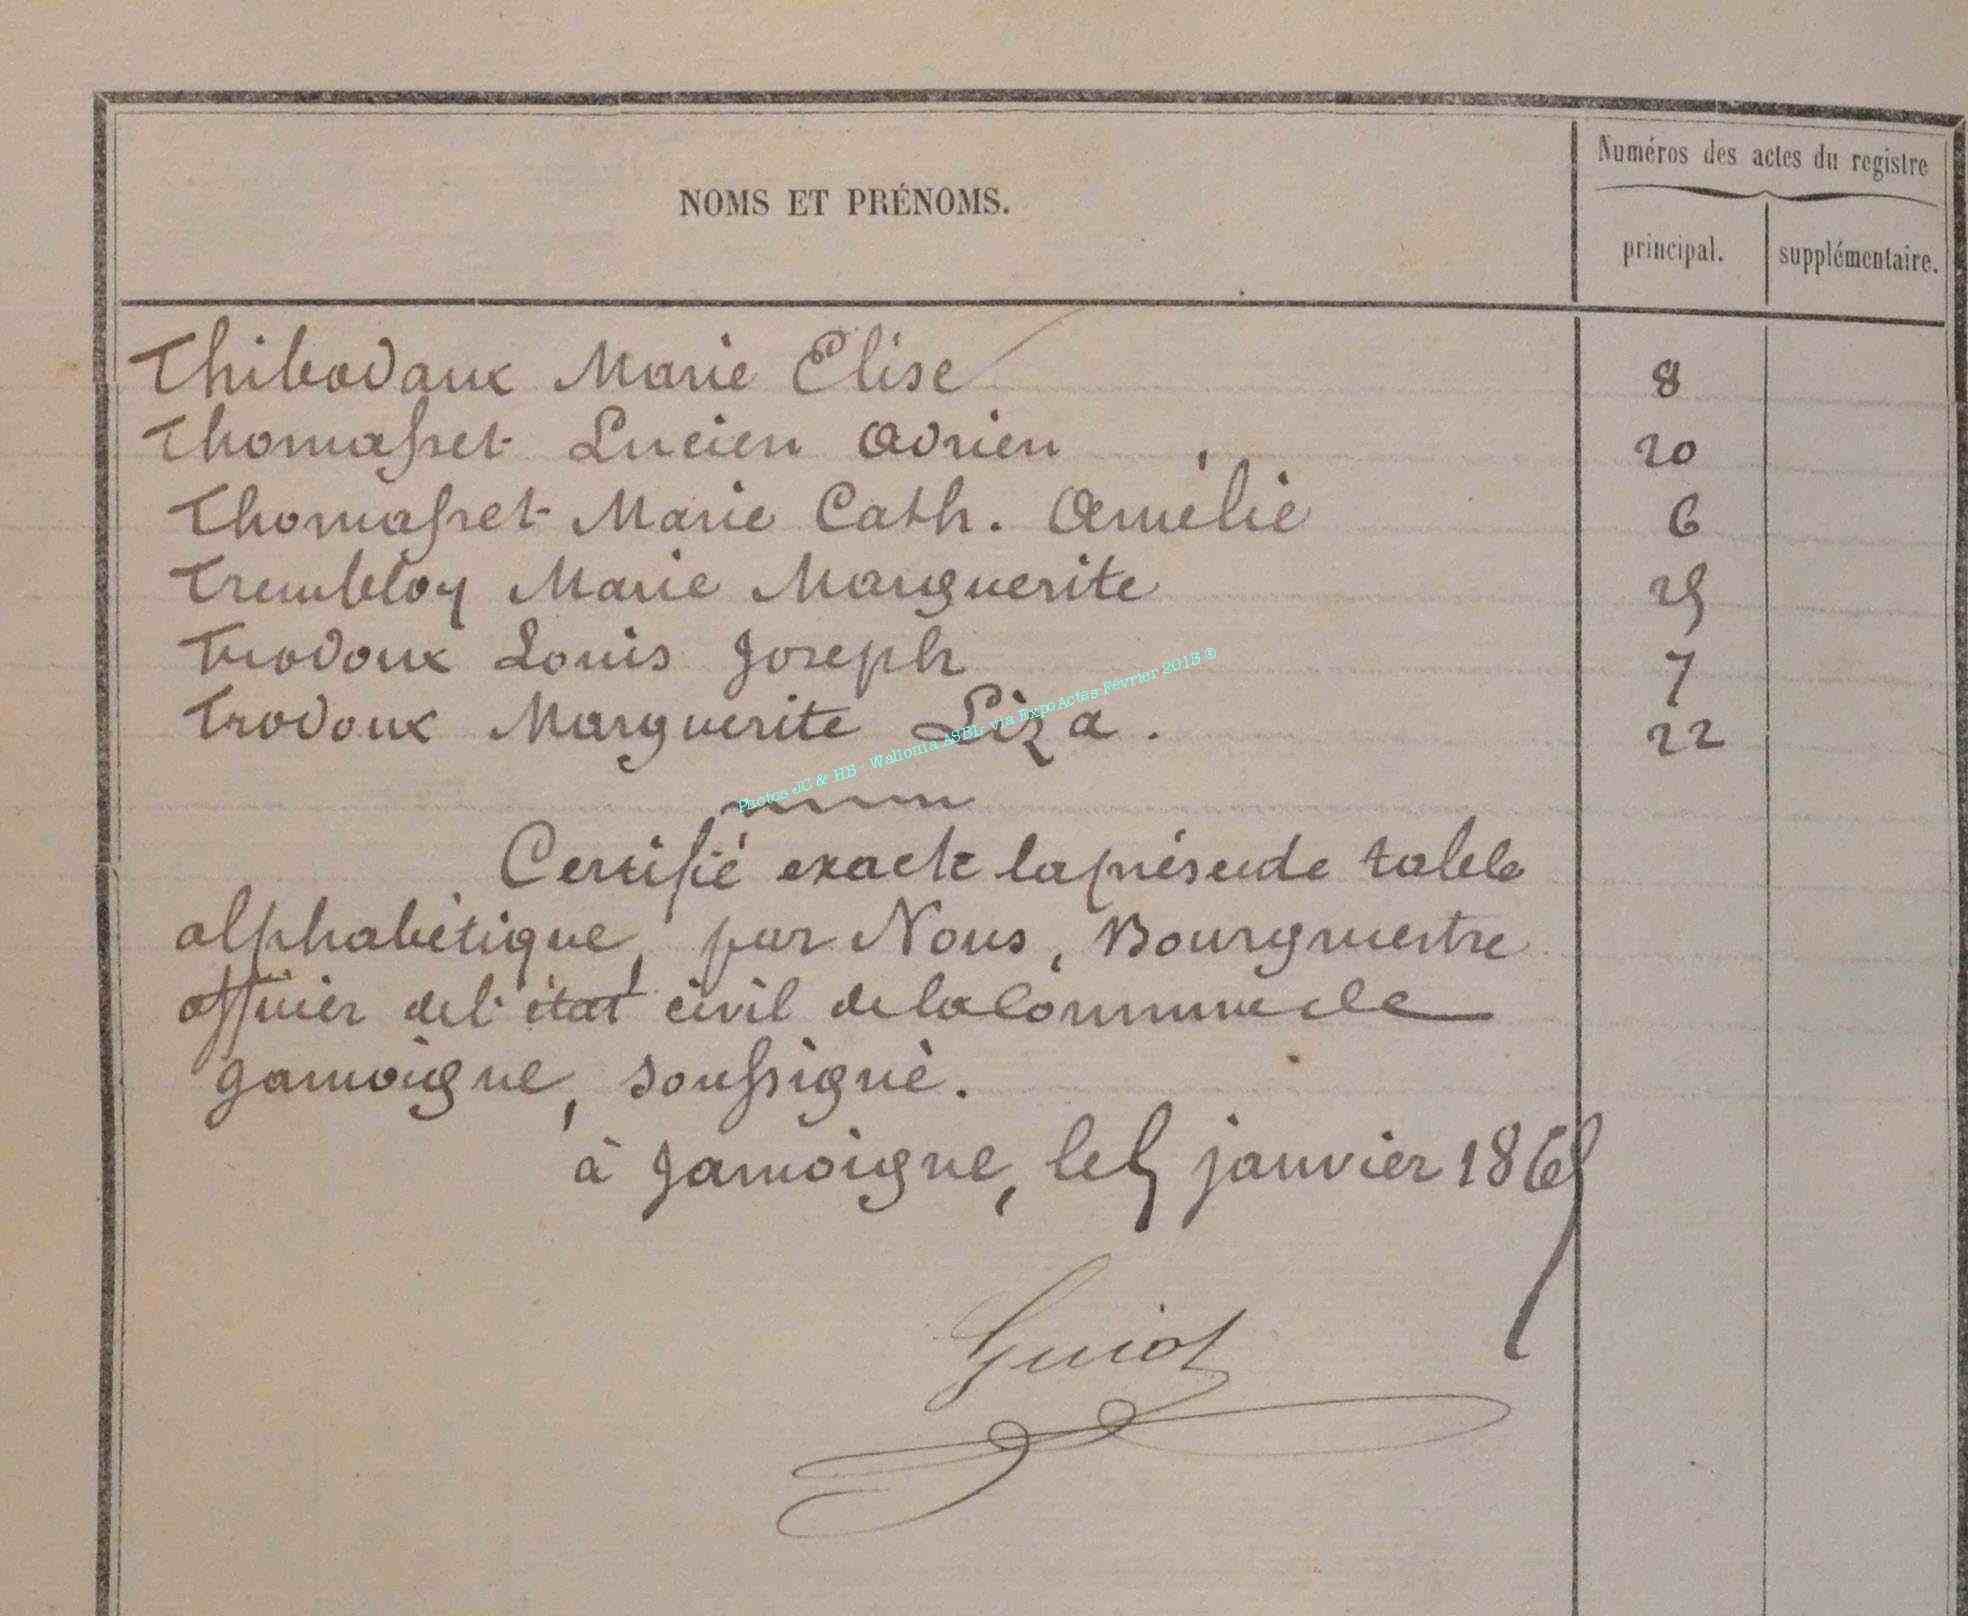 Numéros des actes du registre
NOMS ET PRÉNOMS.
principal. supplémentaire.
Thibodaux Marie Elise 8
Thomasset Lucien Adrien 20
Thomasset Marie Cath. Amélie 6
Trembloy Marie Marguerite 25
Trodoux Louis Joseph 7
Trodoux Marguerite Liza. 22
Photos JC & HB - Wallonia ASBL via ExpoActes Février 2013 ®
Certifié exacte la présente table
alphabétique, par Nous, Bourgmestre
officier de l'état civil de la Commune de
Jamoigne, soussigné.
à Jamoigne, le 5 janvier 1865
Guiot